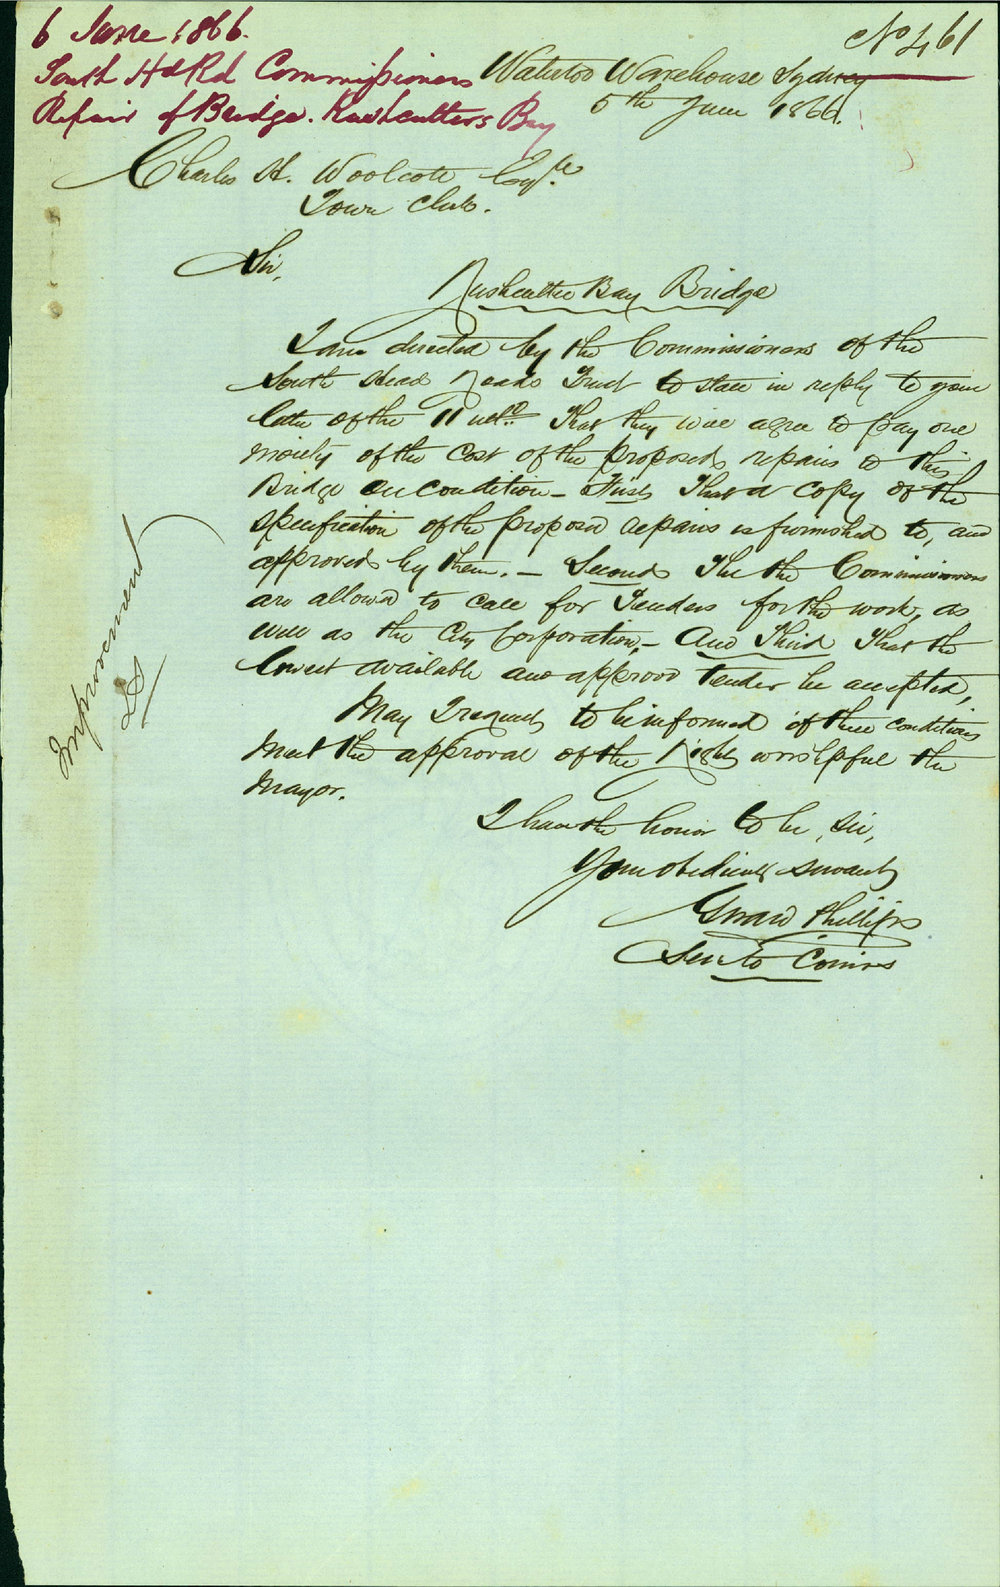 6 June 1866.
No 461
South Hd Rd Commissioners
Repair of Bridge. Rushcutters Bay
Waterloo Warehouse Sydney
5th June 1866.
Charles H. Woolcott Esqre
Town Clerk.
Sir,
Rushcutter Bay Bridge
I am directed by the Commissioners of the
South Head Roads Trust to state in reply to your
letter of the 11 ulto. that they will agree to pay one
moiety of the cost of the proposed repairs to this
Bridge on condition – First That a copy of the
specification of the proposed repairs is furnished to, and
approved by them. – Second The the Commissioners
are allowed to call for Tenders for the work, as
well as the City Corporation, – And Third That the
lowest available and approved tender be accepted,
May I request to be informed if these conditions
meet the approval of the Right worshipful the
Mayor.
I have the honor to be, Sir,
Your obedient servant
Gerard Phillips
Sec to Comrs
Improvement